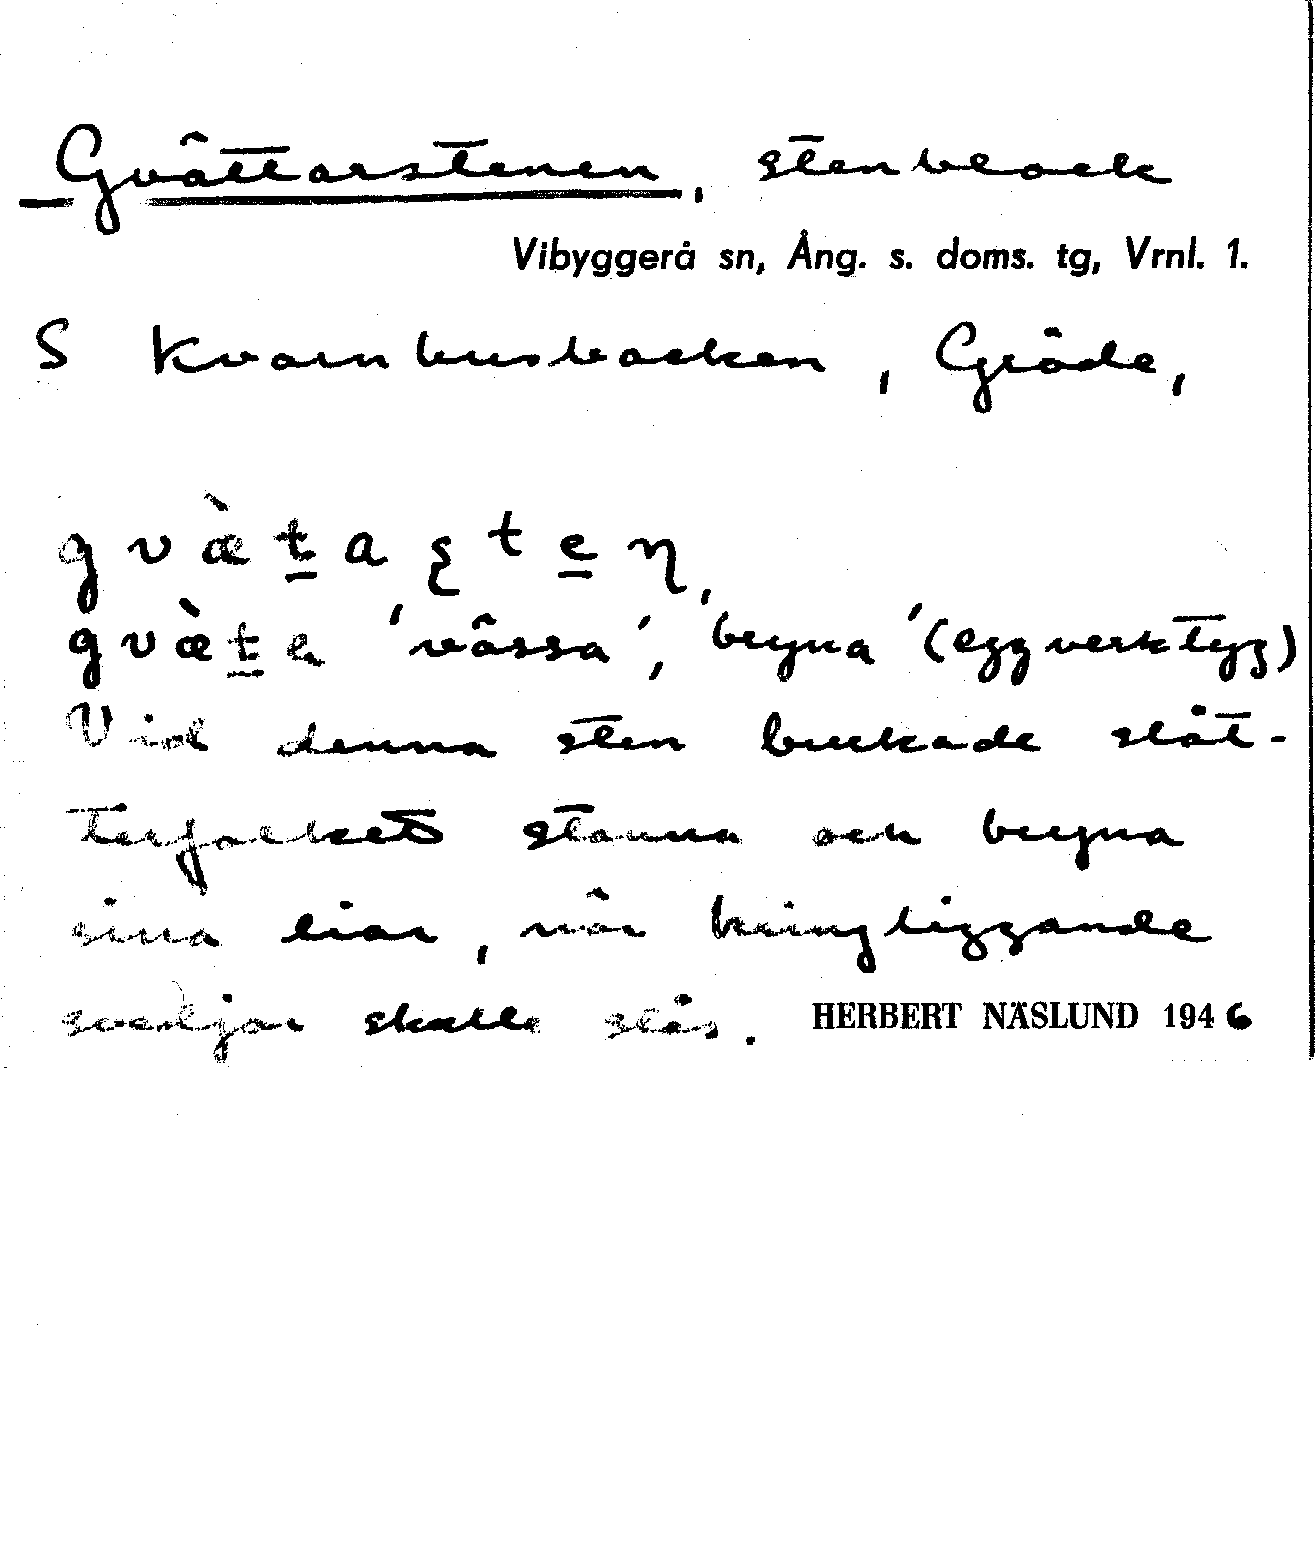 Gvättarstenen, stenblock
Vibyggerå sn, Ång. s. doms. tg, Vrnl. 1.
S Kvarnhusbacken, Gröde,
gvæ̀t̲aʂte̲ɳ,
gvæ̀t̲a 'vässa', 'bryna' (eggverktyg)
Vid denna sten brukade slåt-
terfolket stanna och bryna
sina liar, när kringliggande
svedjor skulle slås. HERBERT NÄSLUND 1946